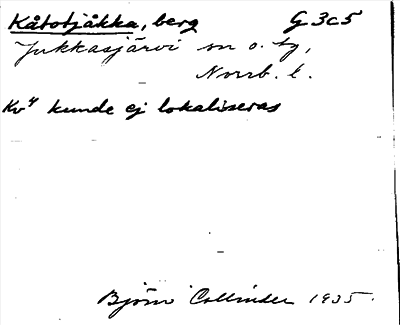 Kåtotjåkka, berg G 3c5
Jukkasjärvi sn o. tg,
Norrb. l.
Kv⁴ kunde ej lokaliseras
Björn Collinder 1935.